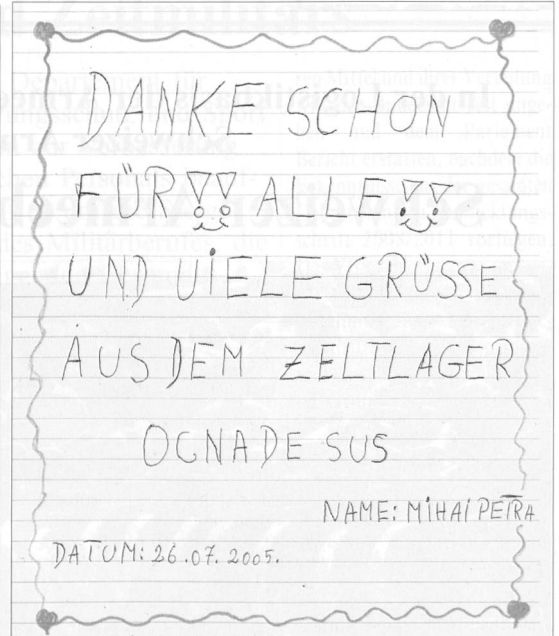 DANKE SCHON
FÜR!! ALLE!!
UND UIELE GRÜSSE
AUS DEM ZELTLAGER
OCNA DE SUS
NAME: MIHAI PETRA
DATUM: 26.07.2005.